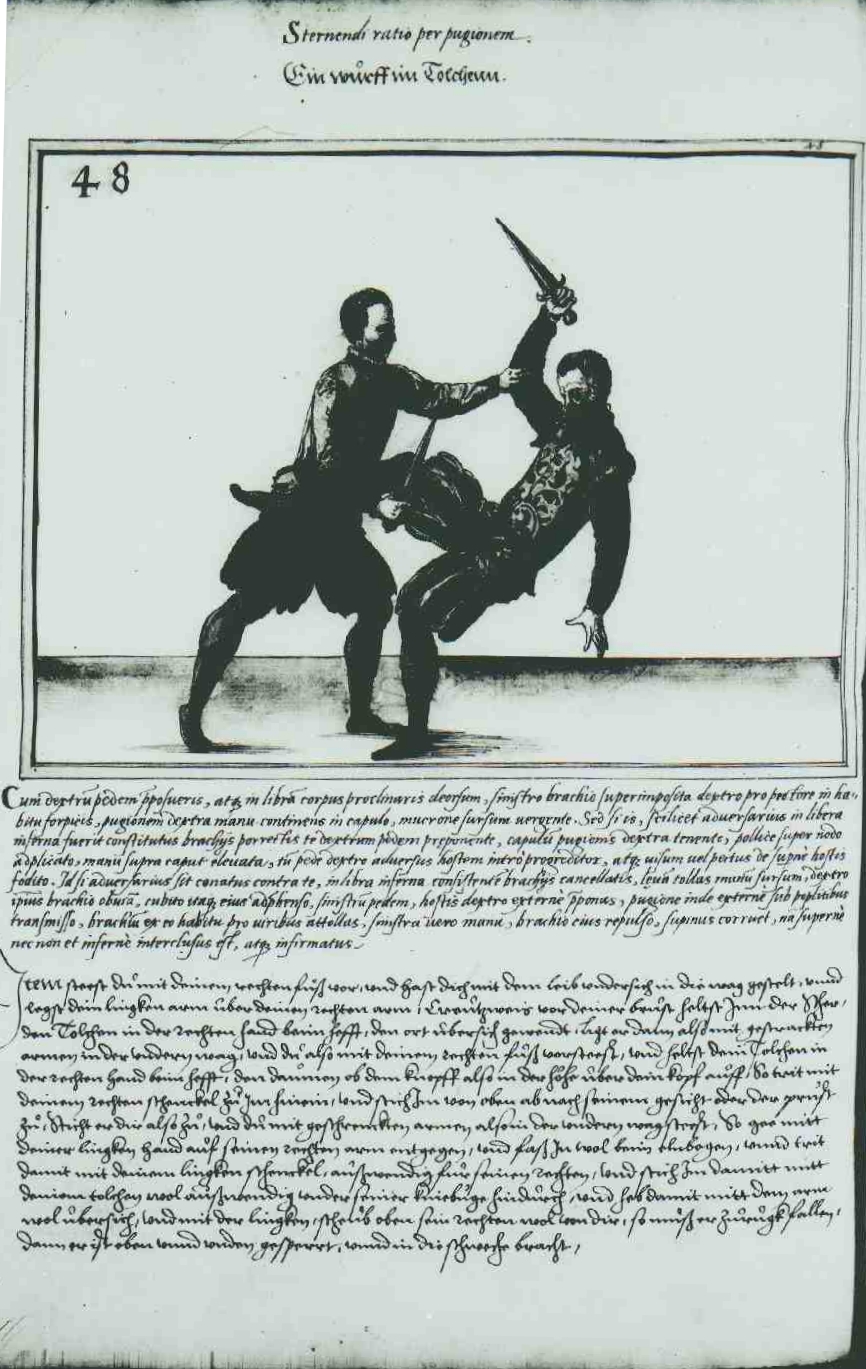 Sternendi ratio per pugionem.
Ein wůrff im Tolchenn.
48
Cum dextrũ pedem ꝓposueris, atq; in librã corpus proclinaris deorsum, sinistro brachio superimposita dextro pro pectore in ha-
bitu forpicis, pugionem dextra manu continens in capulo, mucrone sursum vergente. Sed si is, scilicet adversarius in libera
inferna fuerit constitutus brachijs porrectis te dextrum pedem preponente, capulũ pugionis dextra tenente, pollice super nodo
adplicato, manu supra caput eleuata, tu pede dextro adversus hostem intro progreditor, atq; uisum uel pectus de supne hostis
fodito. Id si adversarius sit conatus contra te, in libra inferna consistente brachijs cancellatis, leuã tollas manũ sursum, dextro
ipsius brachio obuiã, cubito itaq; eius adphenso, sinistrũ pedem, hostis dextro externe ꝓponas, pugione inde externe sub poplitibus
transmisso, brachiũ ex eo habitu pro uiribus attollas, sinistra uero manu, brachio eius repulso, supinus corruet, nã superne
nec non et inferne interclusus est, atq; infirmatus.
Item steest du mit deinem rechten fuß vor, vnd hast dich mit dem leib vndersich in die wag gestelt, vnnd
legst dein lingken arm über deinen rechten arm, Creutzweis vor deiner brust heltst Inn der Scher,
den Tolchen in der rechten hand beim hefft, den ort übersich gewendt, ligt er dann also mit gestrackten
armen in der vndern wag, vnd du also mit deinem rechten fuß vorsteest, vnd heltst dein Tolchen in
der rechten hand beim hefft, den daumen ob dem knopff also in der höhe über dein kopf auff, So trit mit
deinem rechten schenckel zu Im hinein, vnd stich Im von oben ab nach seinem gesicht oder der prust
zu, Sticht er dir also zu, vnd du mit geschrenckten armen also in der vndern wag steest, So gee mitt
deiner lingken hand auf seinen rechten arm entgegen, vnd faß In wol beim elnbogen, vnnd trit
damit mit deinem lingken schenckel, außwendig für seinen rechten, vnd stich Im damitt mitt
deinem tolchen wol außwendig vnder seiner kniebüge hindurch, vnd heb damit mitt dem arm
wol übersich, vnd mit der lingken, scheub oben sein rechten wol von dir, so muß er zurugk fallen,
dann er ist oben vnnd vnden gesperrt, vnnd in die schweche bracht,